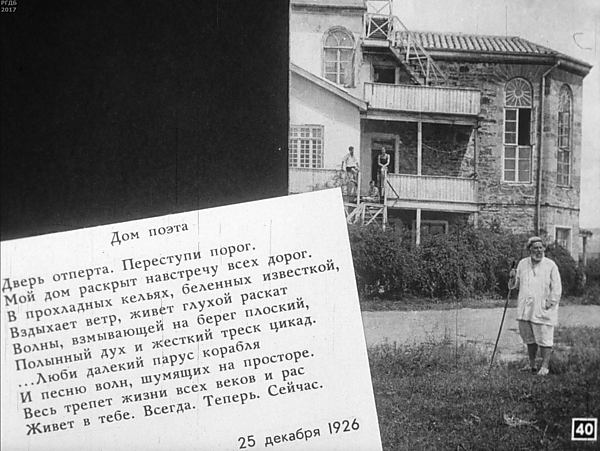 РГДБ
2017
Дом поэта
Дверь отперта. Переступи порог.
Мой дом раскрыт навстречу всех дорог.
В прохладных кельях, беленных известкой,
Вздыхает ветр, живет глухой раскат
Волны, взмывающей на берег плоский,
Полынный дух и жесткий треск цикад.
...Люби далекий парус корабля
И песню волн, шумящих на просторе.
Весь трепет жизни всех веков и рас
Живет в тебе. Всегда. Теперь. Сейчас.
25 декабря 1926
40